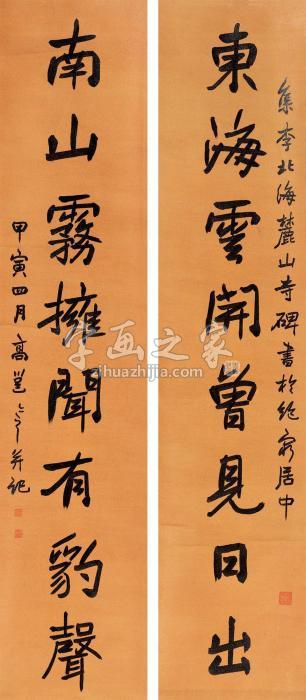 集李北海麓山寺碑書於絶穷居中
東海雲開曾見日出
南山霧擁聞有豹聲
甲寅四月高邕并記
字画之家
zihuazhijia.com